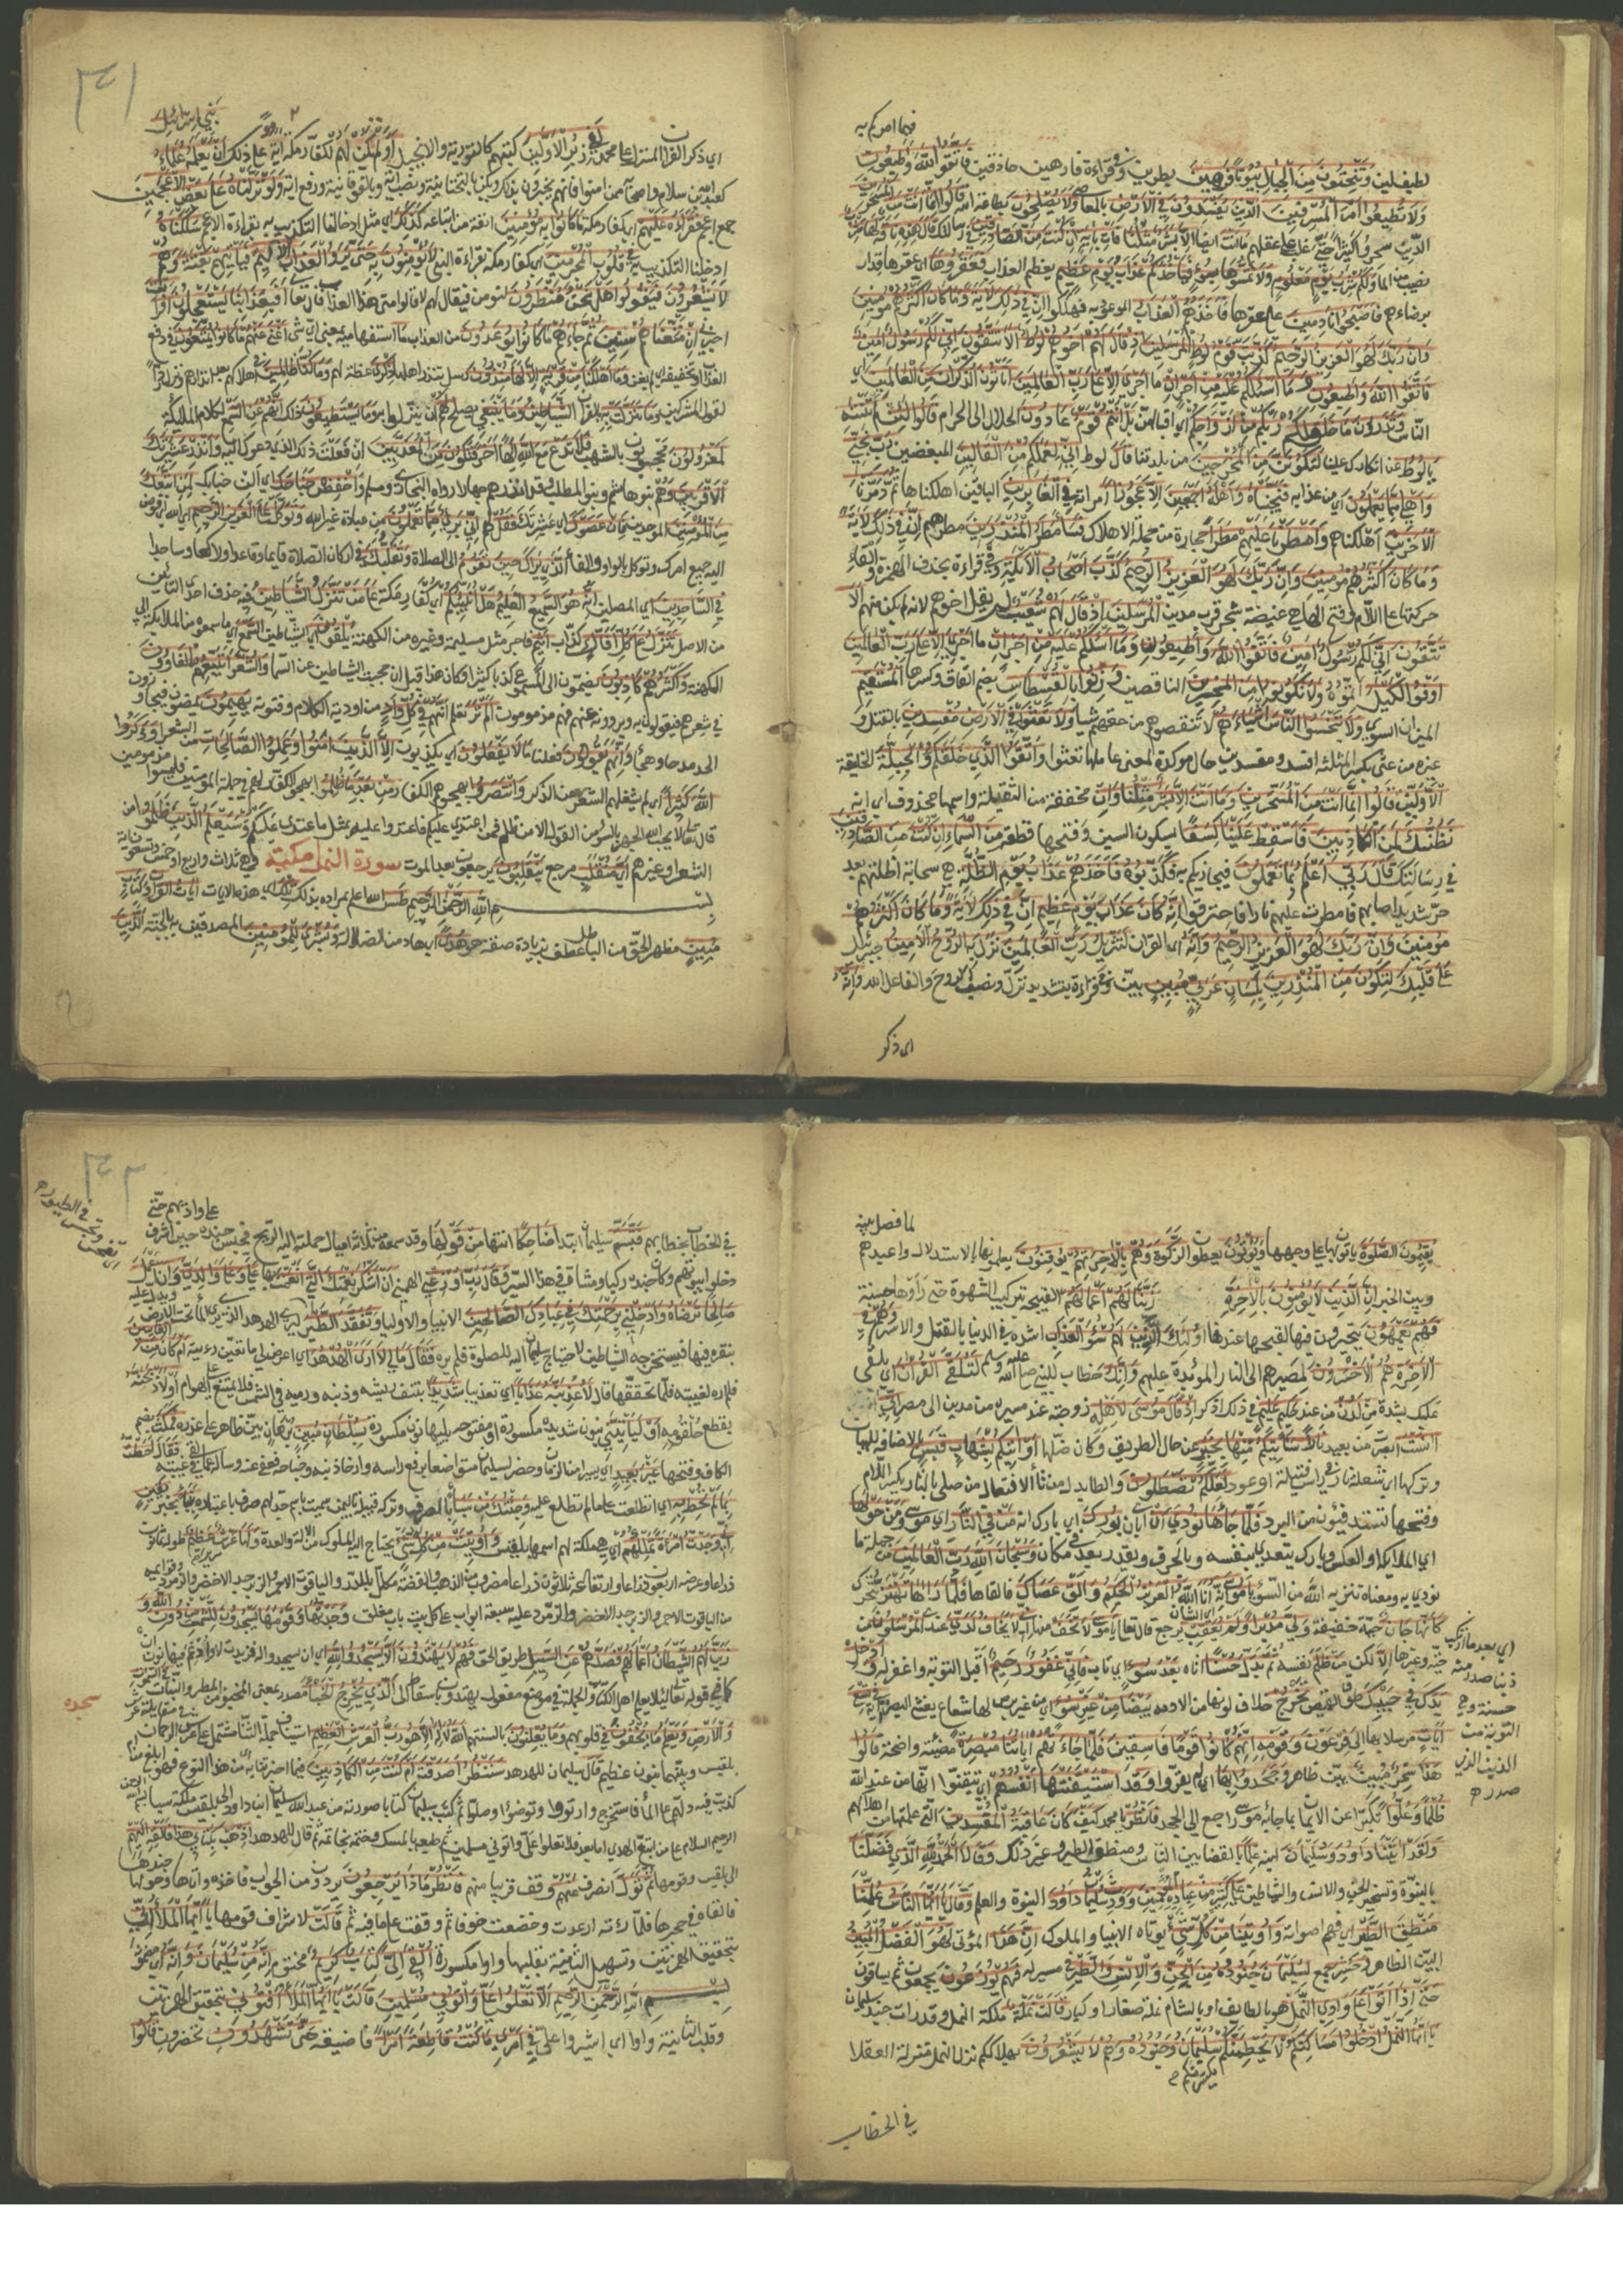 فيما امركم به
لطيف لين وَتَنْحِتُونَ مِنَ الْجِبَالِ بُيُوتًا فَرِهِينَ بطرين وفي قراءة فارهين حاذقين فَاتَّقُوا اللهَ وَأَطِيعُونِ
وَلَا تُطِيعُوا أَمْرَ الْمُسْرِفِينَ الَّذِينَ يُفْسِدُونَ فِي الْأَرْضِ بالمعاصي وَلَا يُصْلِحُونَ بطاعة الله قَالُوا إِنَّمَا أَنْتَ مِنَ الْمُسَحَّرِينَ
الذين سحروا كثيرا حتى غلب على عقلهم مَا أَنْتَ ايضا إِلَّا بَشَرٌ مِثْلُنَا فَأْتِ بِآيَةٍ إِنْ كُنْتَ مِنَ الصَّادِقِينَ في رسالتك قَالَ هَذِهِ نَاقَةٌ لَهَا شِرْبٌ
نصيب من الماء وَلَكُمْ شِرْبُ يَوْمٍ مَعْلُومٍ وَلَا تَمَسُّوهَا بِسُوءٍ فَيَأْخُذَكُمْ عَذَابُ يَوْمٍ عَظِيمٍ بعظم العذاب فَعَقَرُوهَا اي عقرها قدار
برضاءهم فَأَصْبَحُوا نَادِمِينَ على عقرها فَأَخَذَهُمُ الْعَذَابُ الموعود به فهلكوا إِنَّ فِي ذَلِكَ لَآيَةً وَمَا كَانَ أَكْثَرُهُمْ مُؤْمِنِينَ
وَإِنَّ رَبَّكَ لَهُوَ الْعَزِيزُ الرَّحِيمُ كَذَّبَتْ قَوْمُ لُوطٍ الْمُرْسَلِينَ إِذْ قَالَ لَهُمْ أَخُوهُمْ لُوطٌ أَلَا تَتَّقُونَ إِنِّي لَكُمْ رَسُولٌ أَمِينٌ
فَاتَّقُوا اللهَ وَأَطِيعُونِ وَمَا أَسْأَلُكُمْ عَلَيْهِ مِنْ أَجْرٍ إِنْ ما أَجْرِيَ إِلَّا عَلَى رَبِّ الْعَالَمِينَ أَتَأْتُونَ الذُّكْرَانَ مِنَ الْعَالَمِينَ اي
الناس وَتَذَرُونَ مَا خَلَقَ لَكُمْ رَبُّكُمْ مِنْ أَزْوَاجِكُمْ اي اقبالهن بَلْ أَنْتُمْ قَوْمٌ عَادُونَ الحلال الى الحرام قَالُوا لَئِنْ لَمْ تَنْتَهِ
يَا لُوطُ عن انكارك علينا لَتَكُونَنَّ مِنَ الْمُخْرَجِينَ من بلدتنا قَالَ لوط إِنِّي لِعَمَلِكُمْ مِنَ الْقَالِينَ المبغضين رَبِّ نَجِّنِي
وَأَهْلِي مِمَّا يَعْمَلُونَ اي من عذابه فَنَجَّيْنَاهُ وَأَهْلَهُ أَجْمَعِينَ إِلَّا عَجُوزًا امراته فِي الْغَابِرِينَ الباقين اهلكناها ثُمَّ دَمَّرْنَا
الْآخَرِينَ اهلكناهم وَأَمْطَرْنَا عَلَيْهِمْ مَطَرًا حجارة من جملة الاهلاك فَسَاءَ مَطَرُ الْمُنْذَرِينَ مطرهم إِنَّ فِي ذَلِكَ لَآيَةً
وَمَا كَانَ أَكْثَرُهُمْ مُؤْمِنِينَ وَإِنَّ رَبَّكَ لَهُوَ الْعَزِيزُ الرَّحِيمُ كَذَّبَ أَصْحَابُ الْأَيْكَةِ وفي قراءة بحذف الهمزة والقاء
حركتها على اللام وفتح الهاء هي غيضة شجر قرب مدين الْمُرْسَلِينَ إِذْ قَالَ لَهُمْ شُعَيْبٌ لم يقل اخوهم لانه لم يكن منهم أَلَا
تَتَّقُونَ إِنِّي لَكُمْ رَسُولٌ أَمِينٌ فَاتَّقُوا اللهَ وَأَطِيعُونِ وَمَا أَسْأَلُكُمْ عَلَيْهِ مِنْ أَجْرٍ إِنْ ما أَجْرِيَ إِلَّا عَلَى رَبِّ الْعَالَمِينَ
أَوْفُوا الْكَيْلَ اتموه وَلَا تَكُونُوا مِنَ الْمُخْسِرِينَ الناقصين وَزِنُوا بِالْقِسْطَاسِ بضم القاف وكسرها الْمُسْتَقِيمِ
الميزان السوي وَلَا تَبْخَسُوا النَّاسَ أَشْيَاءَهُمْ لا تنقصوهم من حقهم شيا وَلَا تَعْثَوْا فِي الْأَرْضِ مُفْسِدِينَ بالقتل و
غيره من عثي بكسر المثلثة افسد ومفسدين حال موكدة لمعنى عاملها تعثوا وَاتَّقُوا الَّذِي خَلَقَكُمْ وَالْجِبِلَّةَ الخليقة
الْأَوَّلِينَ قَالُوا إِنَّمَا أَنْتَ مِنَ الْمُسَحَّرِينَ وَمَا أَنْتَ إِلَّا بَشَرٌ مِثْلُنَا وَإِنْ مخففة من الثقيلة واسمها محذوف اي انه
نَظُنُّكَ لَمِنَ الْكَاذِبِينَ فَأَسْقِطْ عَلَيْنَا كِسَفًا بسكون السين وفتحها قطعة مِنَ السَّمَاءِ إِنْ كُنْتَ مِنَ الصَّادِقِينَ
في رسالتك قَالَ رَبِّي أَعْلَمُ بِمَا تَعْمَلُونَ فيجازيكم به فَكَذَّبُوهُ فَأَخَذَهُمْ عَذَابُ يَوْمِ الظُّلَّةِ هي سحابة اظلتهم بعد
حر شديد اصابهم فامطرت عليهم نارا فاحترقوا إِنَّهُ كَانَ عَذَابَ يَوْمٍ عَظِيمٍ إِنَّ فِي ذَلِكَ لَآيَةً وَمَا كَانَ أَكْثَرُهُمْ
مُؤْمِنِينَ وَإِنَّ رَبَّكَ لَهُوَ الْعَزِيزُ الرَّحِيمُ وَإِنَّهُ اي القران لَتَنْزِيلُ رَبِّ الْعَالَمِينَ نَزَلَ بِهِ الرُّوحُ الْأَمِينُ جبرئيل
عَلَى قَلْبِكَ لِتَكُونَ مِنَ الْمُنْذِرِينَ بِلِسَانٍ عَرَبِيٍّ مُبِينٍ بيّن وفي قراءة بتشديد نزّل ونصب الروح والفاعل الله وَإِنَّهُ
اى ذكر
٣١
بَنِي إِسْرَائِيلَ
اي ذكر القران المنزل على محمد لَفِي زُبُرِ الْأَوَّلِينَ كتبهم كالتورية والانجيل أَوَلَمْ يَكُنْ لَهُمْ لكفار مكة آيَةً على ذلك أَنْ يَعْلَمَهُ عُلَمَاءُ
كعبد الله بن سلام واصحابه ممن امنوا فانهم يخبرون بذلك ويكن بالتحتانية ونصب اية وبالفوقانية ورفع اية وَلَوْ نَزَّلْنَاهُ عَلَى بَعْضِ الْأَعْجَمِينَ
جمع اعجم فَقَرَأَهُ عَلَيْهِمْ اي كفار مكة مَا كَانُوا بِهِ مُؤْمِنِينَ انفة من اتباعه كَذَلِكَ اي مثل ادخالنا التكذيب به بقراءة الاعجم سَلَكْنَاهُ
ادخلنا التكذيب به فِي قُلُوبِ الْمُجْرِمِينَ اي كفار مكة بقراءة النبي لَا يُؤْمِنُونَ بِهِ حَتَّى يَرَوُا الْعَذَابَ الْأَلِيمَ فَيَأْتِيَهُمْ بَغْتَةً وَهُمْ
لَا يَشْعُرُونَ فَيَقُولُوا هَلْ نَحْنُ مُنْظَرُونَ لنومن فيقال لهم لا قالوا متى هذا العذاب قال تعالى أَفَبِعَذَابِنَا يَسْتَعْجِلُونَ أَفَرَأَيْتَ
اخبرني إِنْ مَتَّعْنَاهُمْ سِنِينَ ثُمَّ جَاءَهُمْ مَا كَانُوا يُوعَدُونَ من العذاب مَا استفهامية بمعنى اي شي أَغْنَى عَنْهُمْ مَا كَانُوا يُمَتَّعُونَ في دفع
العذاب او تخفيفه اي لم يغن وَمَا أَهْلَكْنَا مِنْ قَرْيَةٍ إِلَّا لَهَا مُنْذِرُونَ رسل تنذر اهلها ذِكْرَى عظة لهم وَمَا كُنَّا ظَالِمِينَ في اهلاكهم بعد انذارهم ونزل ردا
لقول المشركين وَمَا تَنَزَّلَتْ بِهِ بالقران الشَّيَاطِينُ وَمَا يَنْبَغِي يصلح لَهُمْ ان ينزلوا به وَمَا يَسْتَطِيعُونَ ذلك إِنَّهُمْ عَنِ السَّمْعِ لكلام الملائكة
لَمَعْزُولُونَ محجوبون بالشهب فَلَا تَدْعُ مَعَ اللهِ إِلَهًا آخَرَ فَتَكُونَ مِنَ الْمُعَذَّبِينَ ان فعلت ذلك الذي دعوك اليه وَأَنْذِرْ عَشِيرَتَكَ
الْأَقْرَبِينَ وهم بنو هاشم وبنو المطلب وقد انذرهم جهارا رواه البخاري ومسلم وَاخْفِضْ جَنَاحَكَ اي الن جانبك لِمَنِ اتَّبَعَكَ
مِنَ الْمُؤْمِنِينَ الموحدين فَإِنْ عَصَوْكَ اي عشيرتك فَقُلْ لهم إِنِّي بَرِيءٌ مِمَّا تَعْمَلُونَ من عبادة غير الله وَتَوَكَّلْ عَلَى الْعَزِيزِ الرَّحِيمِ اي الله اي فوض
اليه جميع امرك وتوكل بالواو والفاء الَّذِي يَرَاكَ حِينَ تَقُومُ الى الصلاة وَتَقَلُّبَكَ في اركان الصلاة قايما وقاعدا وراكعا وساجدا
فِي السَّاجِدِينَ اي المصلين إِنَّهُ هُوَ السَّمِيعُ الْعَلِيمُ هَلْ أُنَبِّئُكُمْ اي كفار مكة عَلَى مَنْ تَنَزَّلُ الشَّيَاطِينُ فيه حذف احدى التائين
من الاصل تَنَزَّلُ عَلَى كُلِّ أَفَّاكٍ كذاب أَثِيمٍ فاجر مثل مسيلمة وغيره من الكهنة يُلْقُونَ اي الشياطين السَّمْعَ اي ما سمعوه من الملائكة الى
الكهنة وَأَكْثَرُهُمْ كَاذِبُونَ يضمون الى المسموع كذبا كثيرا وكان هذا قبل ان حجبت الشياطين عن السماء وَالشُّعَرَاءُ يَتَّبِعُهُمُ الْغَاوُونَ
في شعرهم فيقولون به ويروونه عنهم فهم مذمومون أَلَمْ تَرَ تعلم أَنَّهُمْ فِي كُلِّ وَادٍ من اودية الكلام وفنونه يَهِيمُونَ يمضون فيجاوزون
الحد مدحا وهجاء وَأَنَّهُمْ يَقُولُونَ فعلنا مَا لَا يَفْعَلُونَ اي يكذبون إِلَّا الَّذِينَ آمَنُوا وَعَمِلُوا الصَّالِحَاتِ من الشعراء وَذَكَرُوا
اللهَ كَثِيرًا اي لم يشغلهم الشعر عن الذكر وَانْتَصَرُوا بهجوهم الكفار مِنْ بَعْدِ مَا ظُلِمُوا بهجو الكفار لهم في جملة المومنين فليسوا مذمومين
قال تعالى لا يحب الله الجهر بالسوء من القول الا من ظلم فمن اعتدى عليكم فاعتدوا عليه بمثل ما اعتدى عليكم وَسَيَعْلَمُ الَّذِينَ ظَلَمُوا من
الشعراء وغيرهم أَيَّ مُنْقَلَبٍ مرجع يَنْقَلِبُونَ يرجعون بعد الموت سورة النمل مكية وهي ثلاث واربع او خمس وتسعون اية
بِسْمِ اللهِ الرَّحْمَنِ الرَّحِيمِ طس الله اعلم بمراده بذلك تِلْكَ اي هذه الايات آيَاتُ الْقُرْآنِ وَكِتَابٍ
مُبِينٍ مظهر الحق من الباطل عطف بزيادة صفة هو هُدًى اي هاد من الضلالة وَبُشْرَى لِلْمُؤْمِنِينَ المصدقين به بالجنة الَّذِينَ
لما فصل بينه
يُقِيمُونَ الصَّلَوةَ ياتون بها على وجهها وَيُؤْتُونَ يعطون الزَّكَوةَ وَهُمْ بِالْآخِرَةِ هُمْ يُوقِنُونَ يعلمونها بالاستدلال واعيدهم
وبين الخبر إِنَّ الَّذِينَ لَا يُؤْمِنُونَ بِالْآخِرَةِ زَيَّنَّا لَهُمْ أَعْمَالَهُمْ القبيحة بتركيب الشهوة حتى راوها حسنة
فَهُمْ يَعْمَهُونَ يتحيرون فيها لقبحها عندنا أُولَئِكَ الَّذِينَ لَهُمْ سُوءُ الْعَذَابِ اشده في الدنيا بالقتل والاسر وَهُمْ فِي
الْآخِرَةِ هُمُ الْأَخْسَرُونَ لمصيرهم الى النار المؤبدة عليهم وَإِنَّكَ خطاب للنبي صلى الله عليه وسلم لَتُلَقَّى الْقُرْآنَ اي يلقى
عليك بشدة مِنْ لَدُنْ من عند حَكِيمٍ عَلِيمٍ في ذلك اذكر إِذْ قَالَ مُوسَى لِأَهْلِهِ زوجته عند مسيره من مدين الى مصر إِنِّي
آنَسْتُ ابصرت من بعيد نَارًا سَآتِيكُمْ مِنْهَا بِخَبَرٍ عن حال الطريق وكان ضلها أَوْ آتِيكُمْ بِشِهَابٍ قَبَسٍ بالاضافة للبيان
وتركها اي شعلة نار في راس فتيلة او عود لَعَلَّكُمْ تَصْطَلُونَ والطاء بدل من تاء الافتعال من صلي بالنار بكسر اللام
وفتحها تستدفئون من البرد فَلَمَّا جَاءَهَا نُودِيَ أَنْ اي بان بُورِكَ اي بارك الله مَنْ فِي النَّارِ اي موسى وَمَنْ حَوْلَهَا
اي الملائكة او العكس وبارك يتعدى بنفسه وبالحرف ويقدر بعد في مكان وَسُبْحَانَ اللهِ رَبِّ الْعَالَمِينَ من جملة ما
نودي به ومعناه تنزيه الله من السوء يَا مُوسَى إِنَّهُ أَنَا اللهُ الْعَزِيزُ الْحَكِيمُ وَأَلْقِ عَصَاكَ فالقاها فَلَمَّا رَآهَا تَهْتَزُّ تتحرك
اي الشان
كَأَنَّهَا جَانٌّ حية خفيفة وَلَّى مُدْبِرًا وَلَمْ يُعَقِّبْ يرجع قال تعالى يَا مُوسَى لَا تَخَفْ منها إِنِّي لَا يَخَافُ لَدَيَّ عندي الْمُرْسَلُونَ من
حية وغيرها إِلَّا لكن مَنْ ظَلَمَ نفسه ثُمَّ بَدَّلَ حُسْنًا اتاه بَعْدَ سُوءٍ اي تاب فَإِنِّي غَفُورٌ رَحِيمٌ اقبل التوبة واغفر له وَأَدْخِلْ
يَدَكَ فِي جَيْبِكَ طوق القميص تَخْرُجْ خلاف لونها من الادمة بَيْضَاءَ مِنْ غَيْرِ سُوءٍ اي من غير برص لها شعاع يغشي البصر اية فِي تِسْعِ
آيَاتٍ مرسلا بها إِلَى فِرْعَوْنَ وَقَوْمِهِ إِنَّهُمْ كَانُوا قَوْمًا فَاسِقِينَ فَلَمَّا جَاءَتْهُمْ آيَاتُنَا مُبْصِرَةً مضيئة واضحة قَالُوا
هَذَا سِحْرٌ مُبِينٌ بيّن ظاهر وَجَحَدُوا بِهَا اي لم يقروا وَقد اسْتَيْقَنَتْهَا أَنْفُسُهُمْ اي تيقنوا انها من عند الله
ظُلْمًا وَعُلُوًّا تكبرا عن الايمان بما جاء به موسى راجع الى الجحد فَانْظُرْ يا محمد كَيْفَ كَانَ عَاقِبَةُ الْمُفْسِدِينَ التي علمتها من اهلاكهم
وَلَقَدْ آتَيْنَا دَاوُدَ وَسُلَيْمَانَ ابنه عِلْمًا بالقضاء بين الناس ومنطق الطير وغير ذلك وَقَالَا الْحَمْدُ لِلَّهِ الَّذِي فَضَّلَنَا
بالنبوة وتسخير الجن والانس والشياطين عَلَى كَثِيرٍ مِنْ عِبَادِهِ الْمُؤْمِنِينَ وَوَرِثَ سُلَيْمَانُ دَاوُدَ النبوة والعلم وَقَالَ يَا أَيُّهَا النَّاسُ عُلِّمْنَا
مَنْطِقَ الطَّيْرِ اي فهم اصواته وَأُوتِينَا مِنْ كُلِّ شَيْءٍ يؤتاه الانبيا والملوك إِنَّ هَذَا المؤتى لَهُوَ الْفَضْلُ الْمُبِينُ
البيّن الظاهر وَحُشِرَ جمع لِسُلَيْمَانَ جُنُودُهُ مِنَ الْجِنِّ وَالْإِنْسِ وَالطَّيْرِ في مسير له فَهُمْ يُوزَعُونَ يجمعون ثم يساقون
حَتَّى إِذَا أَتَوْا عَلَى وَادِي النَّمْلِ هو بالطايف او بالشام نملة صغار او كبار قَالَتْ نَمْلَةٌ ملكة النمل وقد رات جند سليمان
يَا أَيُّهَا النَّمْلُ ادْخُلُوا مَسَاكِنَكُمْ لَا يَحْطِمَنَّكُمْ سُلَيْمَانُ وَجُنُودُهُ وَهُمْ لَا يَشْعُرُونَ بهلاككم نزل النمل منزلة العقلاء
يكسرنكم
في الخطاب
اي بعد ما ارتكب
ذنبا صدر منه
حسنة وهي
التوبة من
الذنب الذي
صدر
٣٢
على واديهم حتى
في الخطاب بخطابهم فَتَبَسَّمَ سليمان ابتداء ضَاحِكًا انتهاء مِنْ قَوْلِهَا وقد سمعه من ثلاثة اميال حملته اليه الريح فحبس جنده حين اشرف
دخلوا بيوتهم وكان جنده ركبانا ومشاة في هذا السير وَقَالَ رَبِّ أَوْزِعْنِي الهمني أَنْ أَشْكُرَ نِعْمَتَكَ الَّتِي أَنْعَمْتَ بها عَلَيَّ وَعَلَى وَالِدَيَّ وَأَنْ أَعْمَلَ
صَالِحًا تَرْضَاهُ وَأَدْخِلْنِي بِرَحْمَتِكَ فِي عِبَادِكَ الصَّالِحِينَ الانبيا والاوليا وَتَفَقَّدَ الطَّيْرَ ليرى الهدهد الذي يرى الماء تحت الارض ويدل عليه
بنقره فيها فيستخرجه الشياطين لاحتياج سليمان اليه للصلوة فلم يره فَقَالَ مَا لِيَ لَا أَرَى الْهُدْهُدَ اي اعرض لي ما منعني من رؤيته أَمْ كَانَ مِنَ الْغَائِبِينَ
فلم اره لغيبته فلما تحققها قال لَأُعَذِّبَنَّهُ عَذَابًا اي تعذيبا شَدِيدًا بنتف ريشه وذنبه ورميه في الشمس فلا يمتنع على الهوام أَوْ لَأَذْبَحَنَّهُ
بقطع حلقومه أَوْ لَيَأْتِيَنِّي بنون شديدة مكسورة او مفتوحة يليها نون مكسورة بِسُلْطَانٍ مُبِينٍ برهان بيّن ظاهر على عذره فَمَكَثَ بضم
الكاف وفتحها غَيْرَ بَعِيدٍ اي يسيرا من الزمان وحضر لسليمان متواضعا برفع راسه وارخاء ذنبه وجناحه فعفى عنه وساله عما لقي في غيبته فَقَالَ أَحَطْتُ
بِمَا لَمْ تُحِطْ بِهِ اي اطلعت على ما لم تطلع عليه وَجِئْتُكَ مِنْ سَبَإٍ بالصرف وتركه قبيلة باليمن سميت باسم جد لهم صرف باعتباره بِنَبَإٍ بخبر يَقِينٍ
إِنِّي وَجَدْتُ امْرَأَةً تَمْلِكُهُمْ اي هي ملكة لهم اسمها بلقيس وَأُوتِيَتْ مِنْ كُلِّ شَيْءٍ يحتاج اليه الملوك من الالة والعدة وَلَهَا عَرْشٌ سرير عَظِيمٌ طوله ثمانون
ذراعا وعرضه اربعون ذراعا وارتفاعه ثلاثون ذراعا مضروب من الذهب والفضة مكلل بالدر والياقوت الاحمر والزبرجد الاخضر والزمرد وقوائمه
من الياقوت الاحمر والزبرجد الاخضر والزمرد عليه سبعة ابواب على كل بيت باب مغلق وَجَدْتُهَا وَقَوْمَهَا يَسْجُدُونَ لِلشَّمْسِ مِنْ دُونِ اللهِ وَ
زَيَّنَ لَهُمُ الشَّيْطَانُ أَعْمَالَهُمْ فَصَدَّهُمْ عَنِ السَّبِيلِ طريق الحق فَهُمْ لَا يَهْتَدُونَ أَلَّا يَسْجُدُوا لِلَّهِ اي ان يسجدوا له فزيدت لا وادغم فيها نون ان
كما في قوله تعالى لئلا يعلم اهل الكتاب والجملة في موضع مفعول يهتدون باسقاط الى الَّذِي يُخْرِجُ الْخَبْءَ مصدر بمعنى المخبوء من المطر والنبات فِي السَّمَاوَاتِ
سجده
وَالْأَرْضِ وَيَعْلَمُ مَا يُخْفُونَ في قلوبهم وَمَا يُعْلِنُونَ بالسنتهم اللهُ لَا إِلَهَ إِلَّا هُوَ رَبُّ الْعَرْشِ الْعَظِيمِ استيناف جملة ثناء مشتمل على عرش الرحمان في مقابلة عرش
بلقيس وبينهما بون عظيم قَالَ سليمان للهدهد سَنَنْظُرُ أَصَدَقْتَ أم كُنْتَ مِنَ الْكَاذِبِينَ فيما اخبرتنا به من هذا النوع فهو ابلغ من ام
كذبت فيه ودلهم على الماء فاستخرج وارتووا وتوضؤا وصلوا ثم كتب سليمان كتابا صورته من عبد الله سليمان ابن داود الى بلقيس ملكة سبا بسم الله الرحمن
الرحيم السلام على من اتبع الهدى اما بعد فلا تعلوا علي واتوني مسلمين ثم طبعه بالمسك وختمه بخاتمه ثم قال للهدهد اذْهَبْ بِكِتَابِي هَذَا فَأَلْقِهْ إِلَيْهِمْ
الى بلقيس وقومها ثُمَّ تَوَلَّ انصرف عَنْهُمْ وقف قريبا منهم فَانْظُرْ مَاذَا يَرْجِعُونَ يردون من الجواب فاخذه واتاها وحولها جندها
فالقاه في حجرها فلما راته ارعدت وخضعت خوفا ثم وقفت على ما فيه ثم قَالَتْ لاشراف قومها يَا أَيُّهَا الْمَلَأُ إِنِّي
بتحقيق الهمزتين وتسهيل الثانية بقلبها واوا مكسورة أُلْقِيَ إِلَيَّ كِتَابٌ كَرِيمٌ مختوم إِنَّهُ مِنْ سُلَيْمَانَ وَإِنَّهُ اي مضمونه
بِسْمِ اللهِ الرَّحْمَنِ الرَّحِيمِ أَلَّا تَعْلُوا عَلَيَّ وَأْتُونِي مُسْلِمِينَ قَالَتْ يَا أَيُّهَا الْمَلَأُ أَفْتُونِي بتحقيق الهمزتين
وقلب الثانية واوا اي اشيروا علي فِي أَمْرِي مَا كُنْتُ قَاطِعَةً أَمْرًا قاضيته حَتَّى تَشْهَدُونِ تحضرون قَالُوا